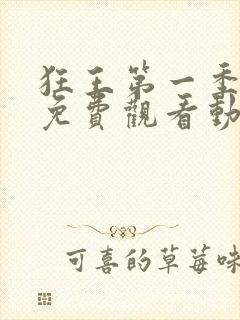 狂王第一季
免費觀看動
可喜的草莓味